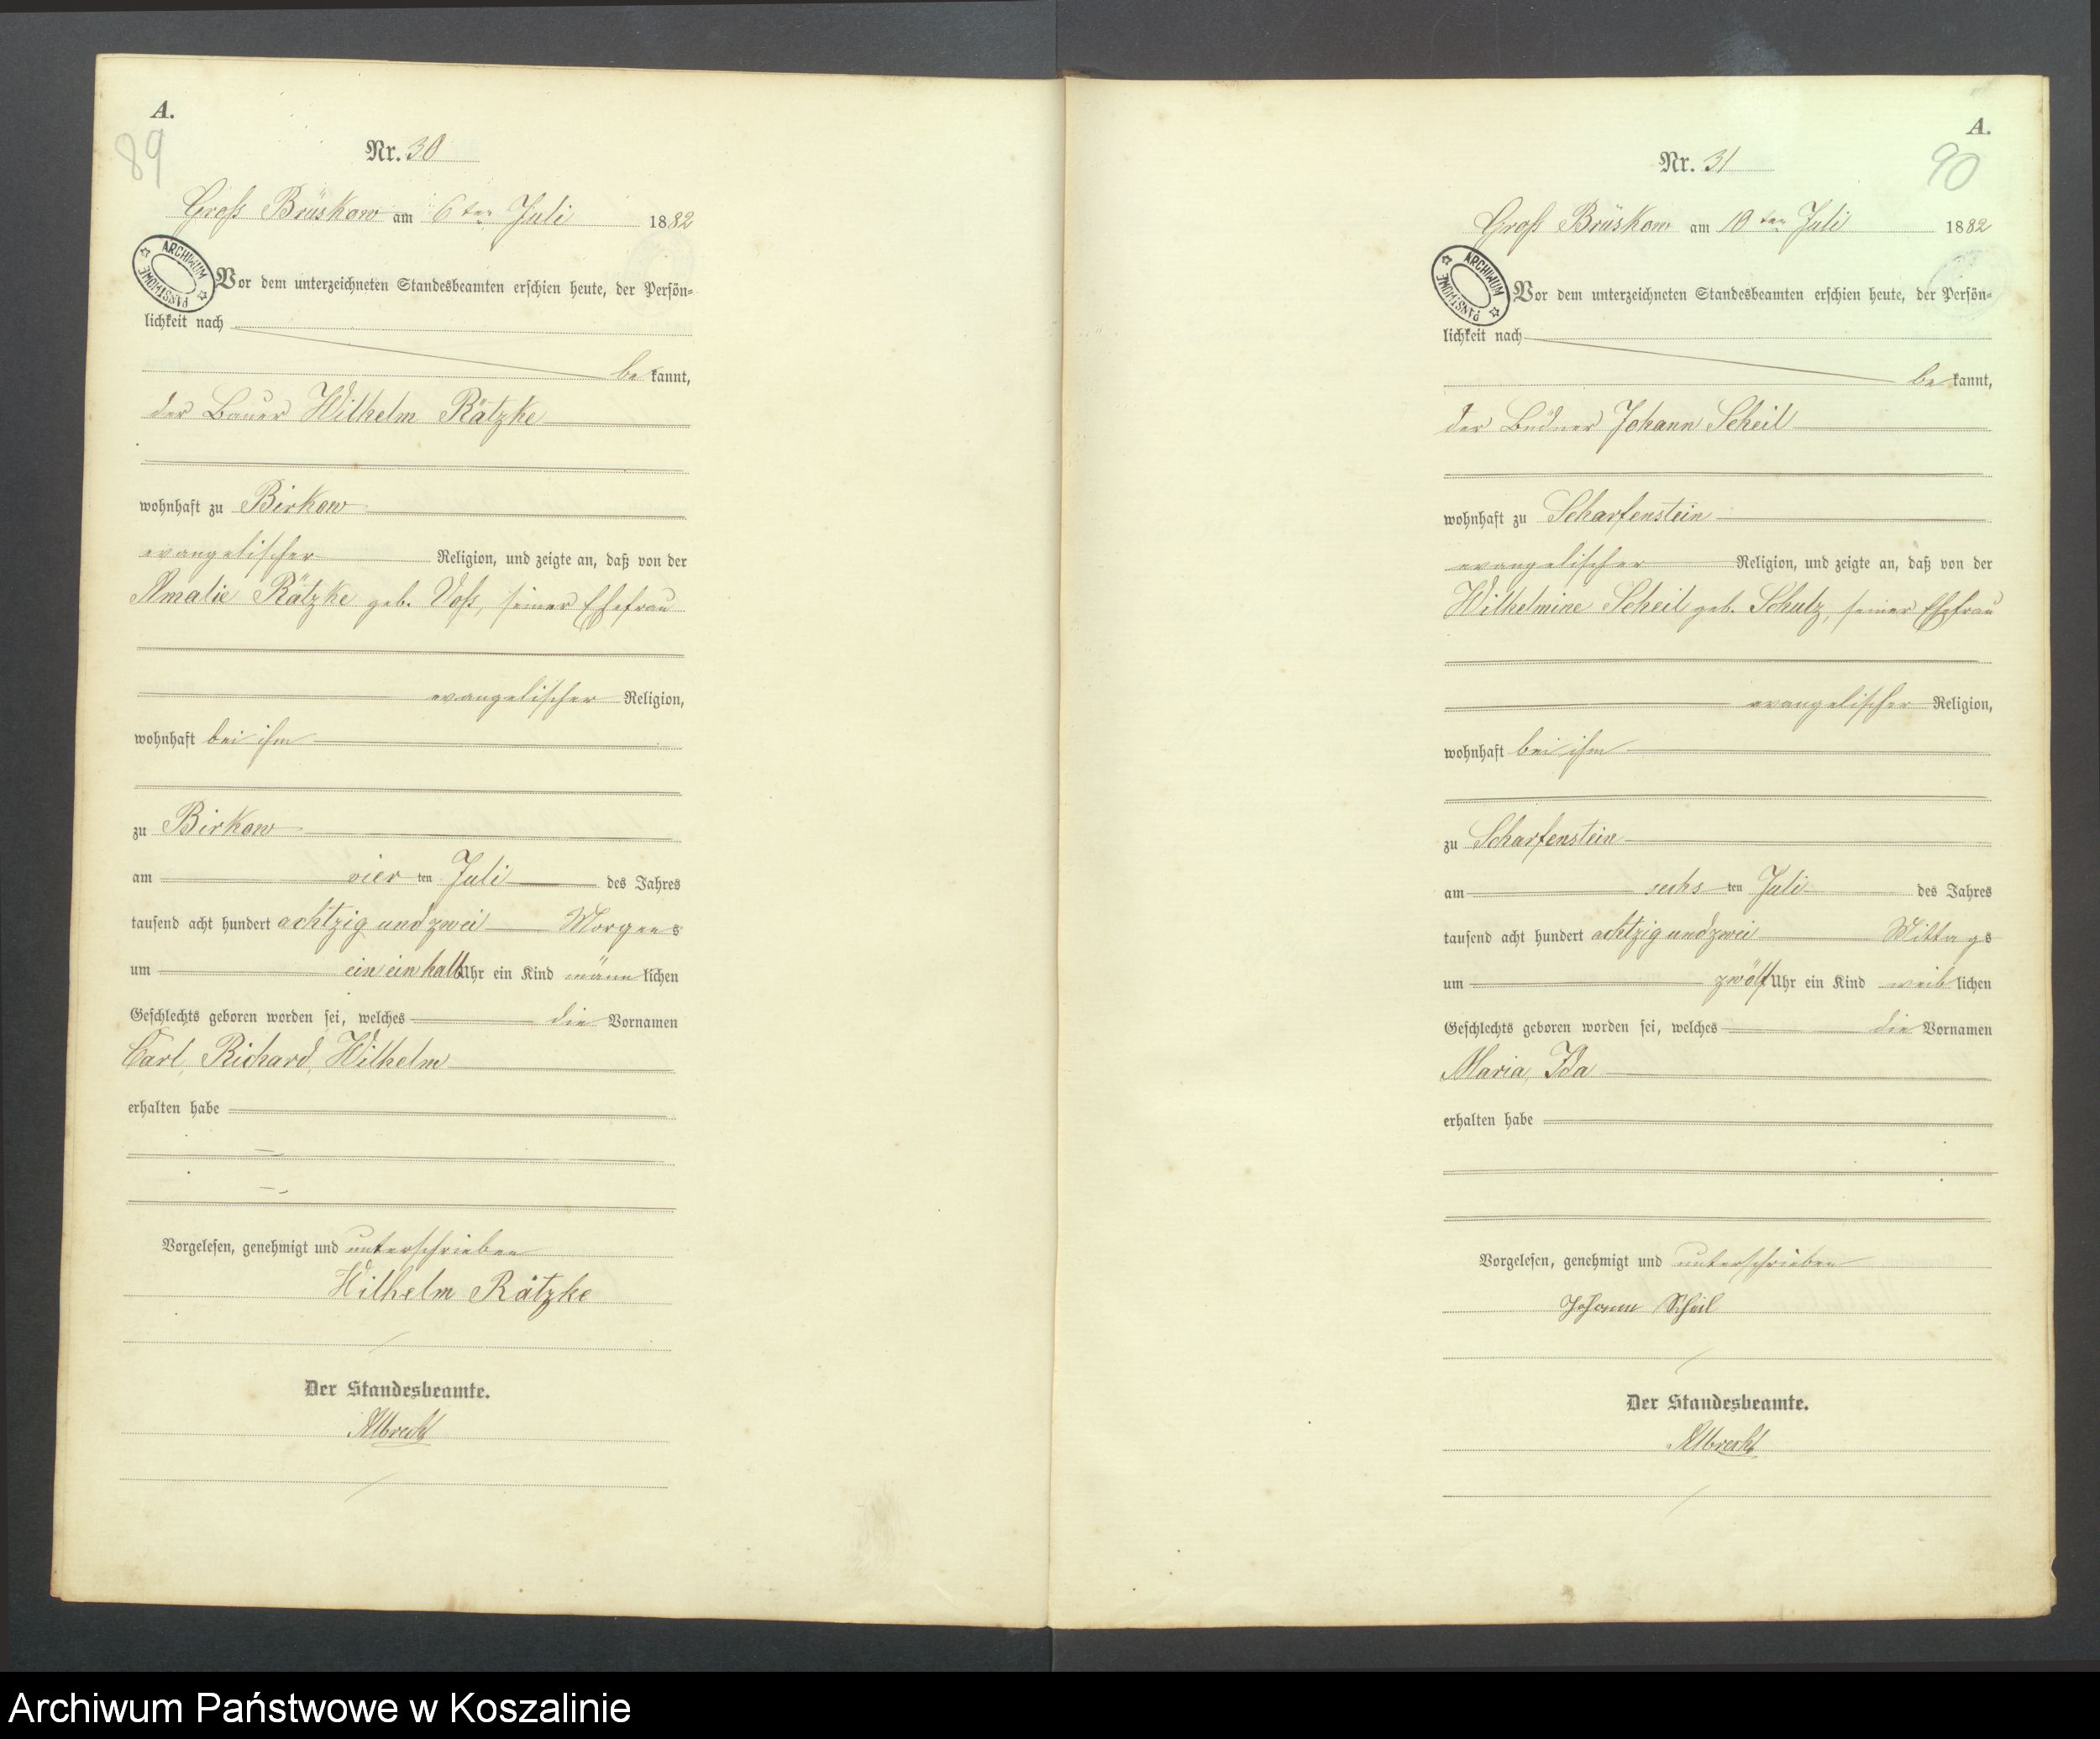 A.
89
Nr. 30
Groß Brüskow am 6ten Juli 1882
ARCHIWUM PAŃSTWOWE
Vor dem unterzeichneten Standesbeamten erschien heute, der Persön-
lichkeit nach
bekannt,
der Bauer Wilhelm Rätzke
wohnhaft zu Birkow
evangelischer Religion, und zeigte an, daß von der
Amalie Rätzke geb. Voß, seiner Ehefrau
evangelischer Religion,
wohnhaft bei ihm
zu Birkow
am vierten Juli des Jahres
tausend acht hundert achtzig und zwei Morgens
um ein ein halb Uhr ein Kind männlichen
Geschlechts geboren worden sei, welches die Vornamen
Carl, Richard, Wilhelm
erhalten habe
Vorgelesen, genehmigt und unterschrieben
Wilhelm Rätzke
Der Standesbeamte.
Albrecht
A.
90
Nr. 31
Groß Brüskow am 10ten Juli 1882
ARCHIWUM PAŃSTWOWE
Vor dem unterzeichneten Standesbeamten erschien heute, der Persön-
lichkeit nach
bekannt,
der Büdner Johann Scheil
wohnhaft zu Scharfenstein
evangelischer Religion, und zeigte an, daß von der
Wilhelmine Scheil geb. Schulz, seiner Ehefrau
evangelischer Religion,
wohnhaft bei ihm
zu Scharfenstein
am sechsten Juli des Jahres
tausend acht hundert achtzig und zwei Mittags
um zwölf Uhr ein Kind weiblichen
Geschlechts geboren worden sei, welches die Vornamen
Maria, Ida
erhalten habe
Vorgelesen, genehmigt und unterschrieben
Johann Scheil
Der Standesbeamte.
Albrecht
Archiwum Państwowe w Koszalinie